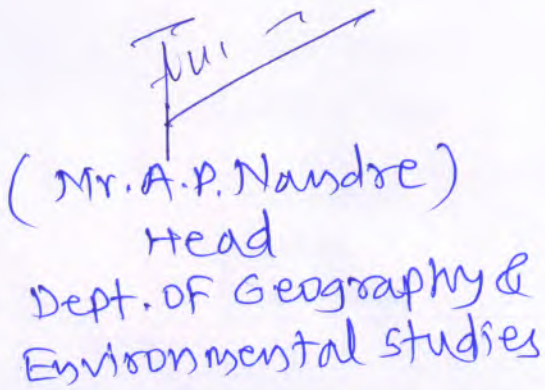 (Mr. A.P. Nandre)
Head
Dept. OF Geography &
Environmental studies